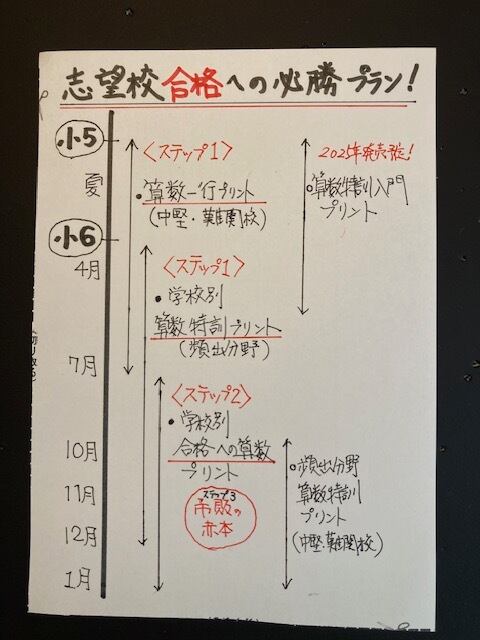 志望校合格への必勝プラン!
小5
夏
小6
4月
7月
10月
11月
12月
1月
〈ステップ1〉
・算数一行プリント
(中堅・難関校)
2025年発売予定!
・算数特訓入門
プリント
〈ステップ1〉
・学校別
算数特訓プリント
(頻出分野)
〈ステップ2〉
・学校別
合格への算数
プリント
ステップ3
不敗の
赤本
・頻出分野
算数特訓
プリント
(中堅・難関校)